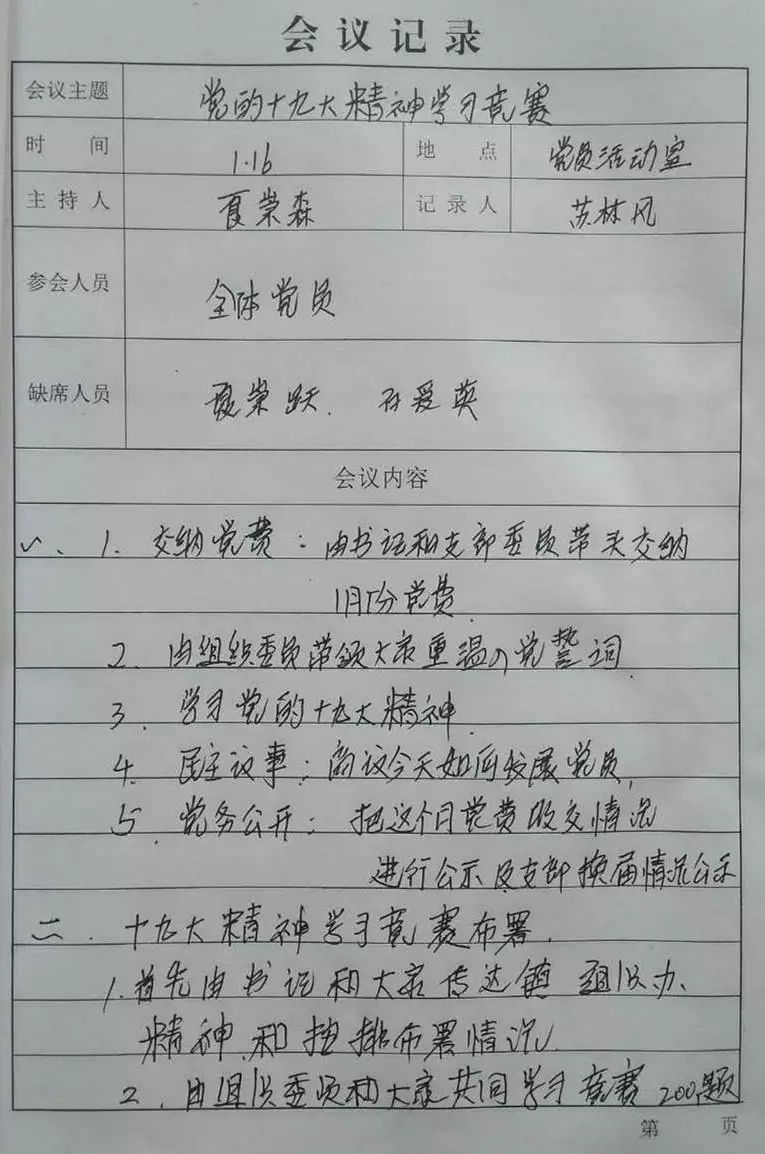 会议记录
会议主题 党的十九大精神学习竞赛
时 间 1.16 地 点 党员活动室
主持人 夏崇森 记录人 苏林凤
参会人员 全体党员
缺席人员 夏崇跃. 石爱英
会议内容
一、1. 交纳党费：由书记和支部委员带头交纳
1月份党费
2. 由组织委员带领大家重温入党誓词
3. 学习党的十九大精神
4. 民主议事：商议今天如何发展党员,
5. 党务公开：把这个月党费收交情况
进行公示及支部换届情况公示
二. 十九大精神学习竞赛布署.
1. 首先由书记和大家传达镇 组织办、
精神和 排布署情况
2. 由组织委员和大家共同学习竞赛200题
第 页